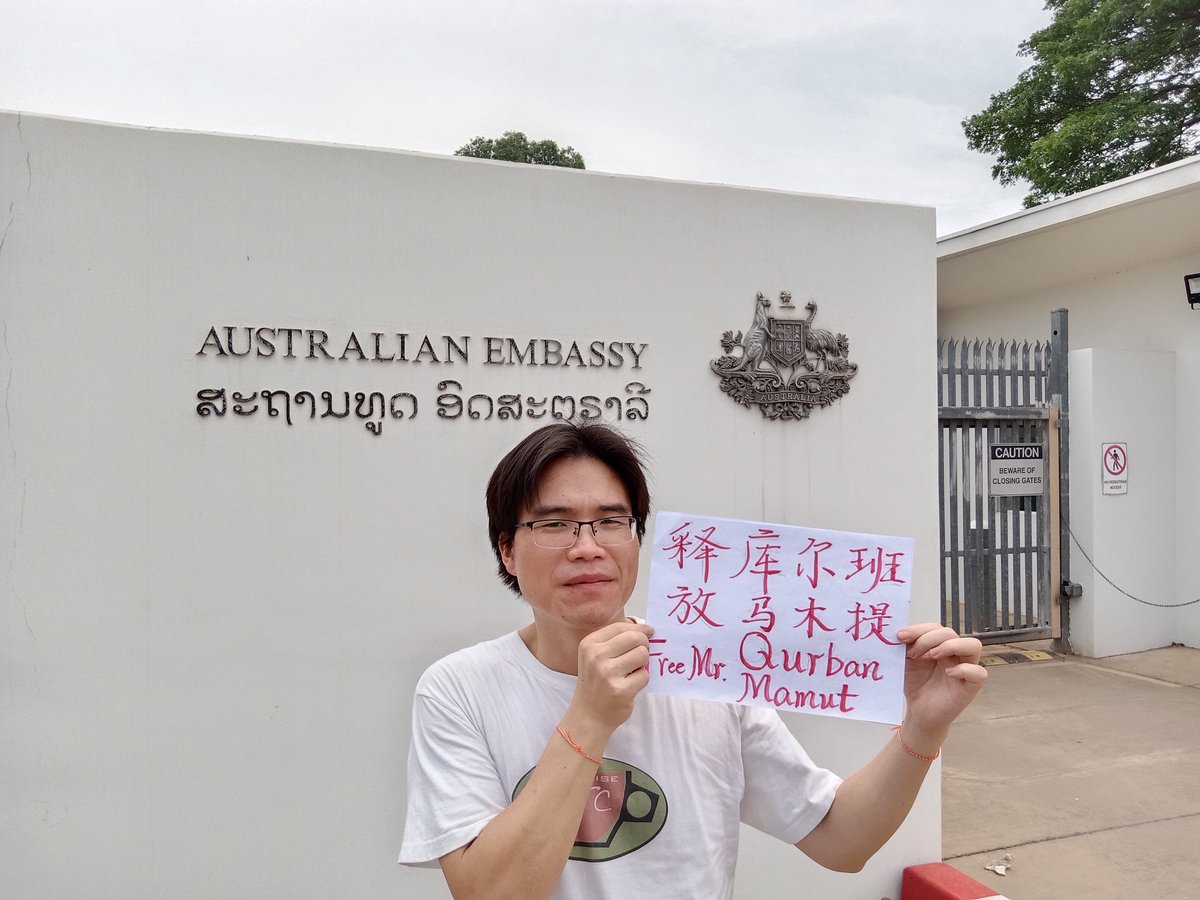 AUSTRALIAN EMBASSY
ສະຖານທູດ ອົດສະຕຣາລີ
AUSTRALIA
CAUTION
BEWARE OF
CLOSING GATES
NO PEDESTRIAN
ACCESS
释库尔班
放马木提
Free Mr. Qurban
Mamut